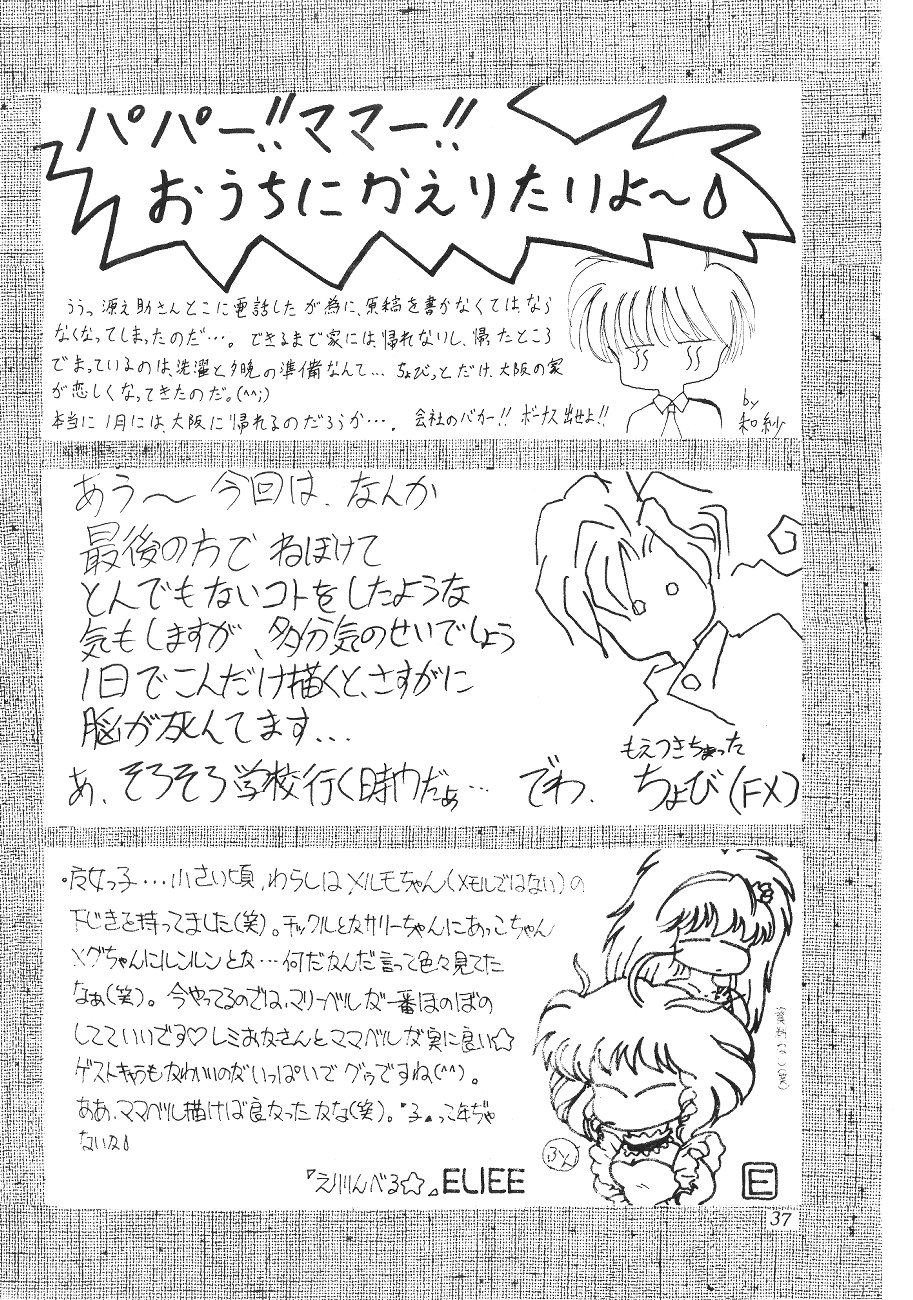 パパー!!ママー!!
おうちにかえりたいよ〜♪
ううっ源之助さんとこに電話したが為に、原稿を書かなくてはなら
なくなってしまったのだ…。できるまで家には帰れないし、帰ったところ
でまっているのは、洗濯と夕晩の準備なんて… ちょびっとだけ、大阪の家
が恋しくなってきたのだ。(^^;)
本当に1月には、大阪に帰れるのだろうか…。 会社のバカー!! ボーナス出せよ!!
by
和紗
あう〜 今回は、なんか
最後の方で ねぼけて
とんでもないコトをしたような
気もしますが、多分気のせいでしょう
1日でこんだけ描くと、さすがに
脳が死んてます...
あ、そろそろ学校行く時間だぁ… でわ.
もえつきちゃった
ちょび(FX)
魔女っ子…小さい頃,わらしはメルモちゃん(メモルではない)の
下じきを持ってました(笑)。チックルとかサリーちゃんにあっこちゃん
メグちゃんにルンルンとか…何だかんだ言って色々見てた
なぁ(笑)。今やってるのでは、マリーベルが一番ほのぼの
してていいです♡レミおかさんとママベルが実に良い☆
ゲストキャラもかわいいのがいっぱいでグゥですね(^^)。
ああ、ママベル描けば良かったかな(笑)。"子"って年ぢゃ
ないか♪
『えりりんべる☆』ELIEE
E
37